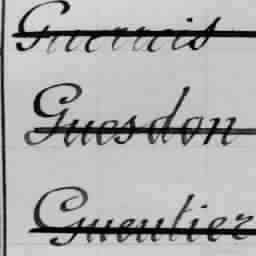 Guerreis
Guesdon
Gueulier